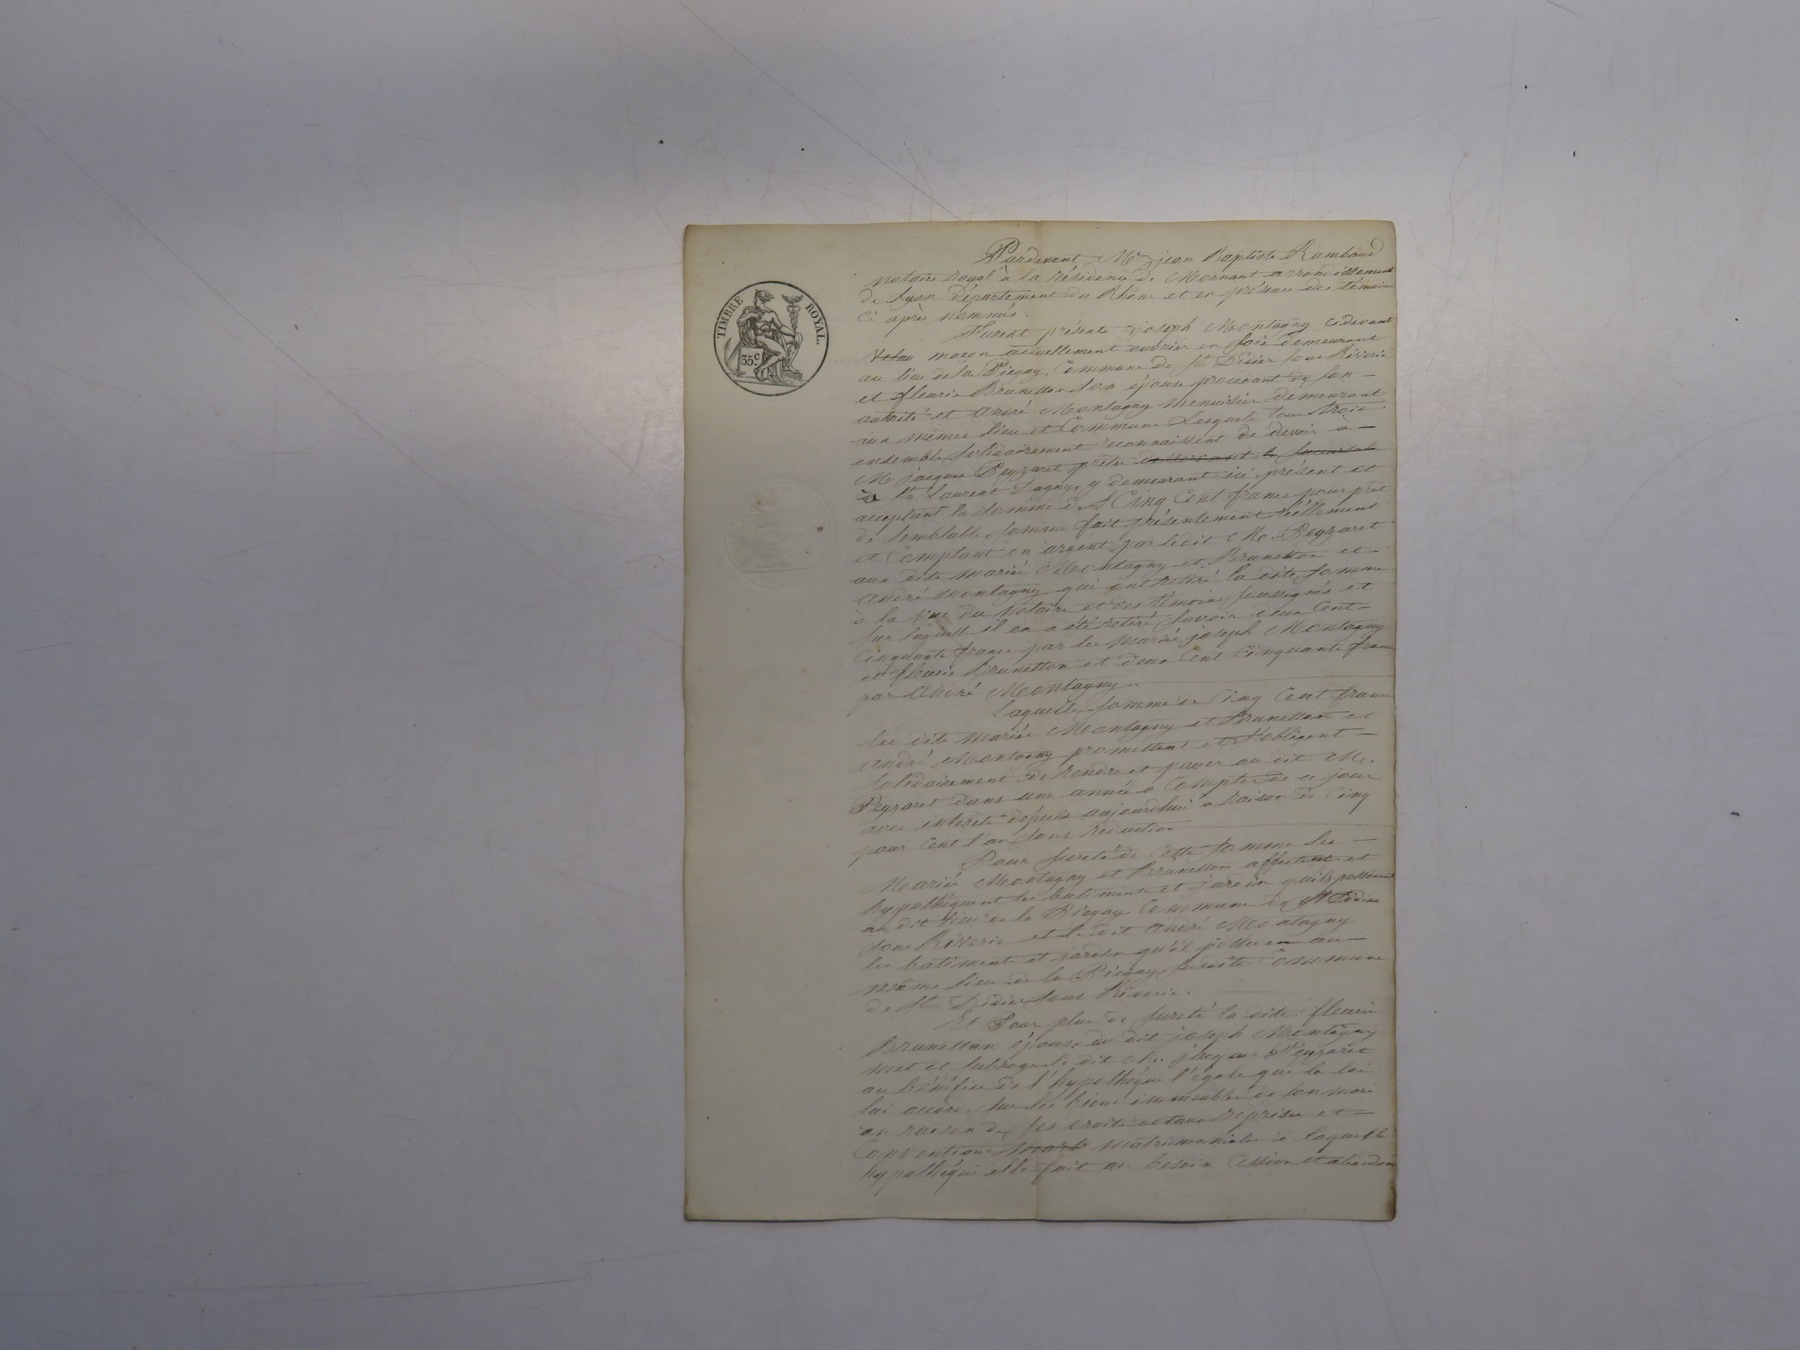 TIMBRE ROYAL.
35c
Pardevant Me jean Baptiste Rambaud
notaire royal à la résidence de Mornant arrondissement
de Lyon Département du Rhône et en présence des témoins
Ci après nommés.
Furent présents joseph Montagny cidevant
maçon actuellement ouvrier en soie demeurant
au lieu de la Piegay, Commune de St Didier sous Riverie
et fleurie Brunetton son épouse procédant de son
autorité et André Montagny menuisier demeurant
aux mêmes lieu et Commune Lesquels tous trois
ensemble solidairement reconnaissent de devoir à
M. jacques Peyzaret prêtre desservant la succursale
à St Laurent Dagny, y demeurant ici présent et
acceptant la somme de Cinq Cent francs pour prêt
de semblable somme fait présentement réellement
et Comptant en argent par le dit M. Peyzaret
aux dits mariés Montagny et Brunetton et
André Montagny qui ont retiré la dite somme
à la vue du Notaire et des témoins soussignés et
sur laquelle il en a été retiré savoir deux Cent
Cinquante francs par les mariés joseph Montagny
et fleurie Brunetton et deux Cent Cinquante francs
par André Montagny.
Laquelle somme de Cinq Cent francs
les dits mariés Montagny et Brunetton et
André Montagny promettent et s'obligent
solidairement de rendre et payer au dit M.
Peyzaret dans une année à Compter de ce jour
avec intérêts depuis aujourdhui à raison de Cinq
pour Cent l'an sans retenue
Pour sureté de cette somme les
Mariés Montagny et Brunetton affectent et
hypothèquent les batiments et jardin qu'ils possèdent
au dit lieu de la Piegay Commune de St Didier
sous Riverie et le dit André Montagny
les batiments et jardin qu'il possède au
même lieu de la Piegay susdite Commune
de St Didier sous Riverie.
Et Pour plus de sureté la dite fleurie
Brunetton épouse du dit joseph Montagny
met et subroge le dit M. jacques Peyzaret
au bénéfice de l'hypothèque légale que la loi
lui accorde sur les biens immeubles de son mari
en raison de ses droits et reprises et
Conventions matrimoniales à laquelle
hypothèque elle fait au besoin Cession et abandon